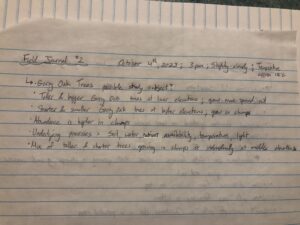 Field Journal #2 October 4th, 2023 ; 3pm, Slightly cloudy ; Temperature
↳ Garry Oak Trees possible study subject?
• Taller & bigger Garry Oak trees at lower elevations ; grow more spread out
• Shorter & smaller Garry oak trees at higher elevations, grow in clumps
• Abundance is higher in clumps
• Underlying processes = Soil, water, nutrient availability, temperature, light
• Mix of taller & shorter trees, growing in clumps & individually at middle elevations